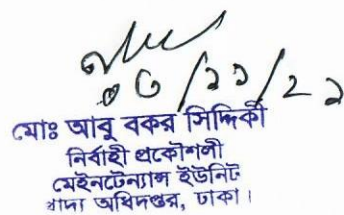 ০৩/১১/২২
মোঃ আবু বকর সিদ্দিকী
নির্বাহী প্রকৌশলী
মেইনটেন্যান্স ইউনিট
খাদ্য অধিদপ্তর, ঢাকা।